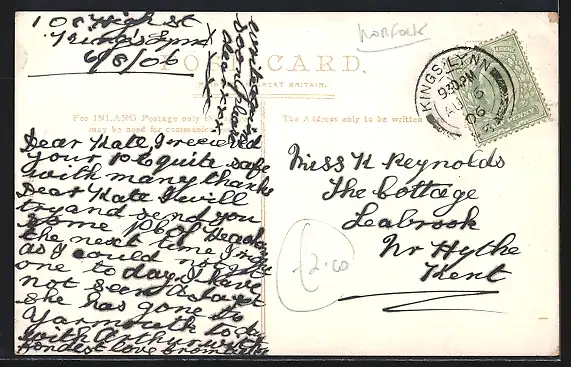 108 High St
Kings Lynn
6/8/06
write soon
Norfolk
POST CARD.
GREAT BRITAIN.
For INLAND Postage only this
may be used for communication
The Address only to be written
KINGS LYNN
9.30PM
AU 6
06
Dear Kate, I received
your P.C quite safe
with many thanks
Dear Kate I will
try and send you
some P.C of Heacham
the next time I write
as I could not get
one to day. I have
not seen
she has gone to
Yarmouth to day
with Arthur with
fondest love from
Miss K Reynolds
The Cottage
Seabrook
Nr Hythe
Kent
£2.00